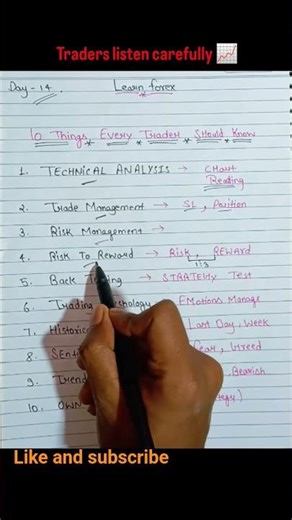 Traders listen carefully 📈
Day - 14. Learn forex
10 Things Every Trader Should Know
1. TECHNICAL ANALYSIS → CHART Reading
2. Trade Management → SL, Position
3. Risk Management →
4. Risk To Reward → Risk, REWARD
1:3
5. Back → STRATEGY Test
6. Trading → EMotions Manage
7. Last Day, Week
8. Greed
9. Trend , Bearish
10. OWN
Like and subscribe